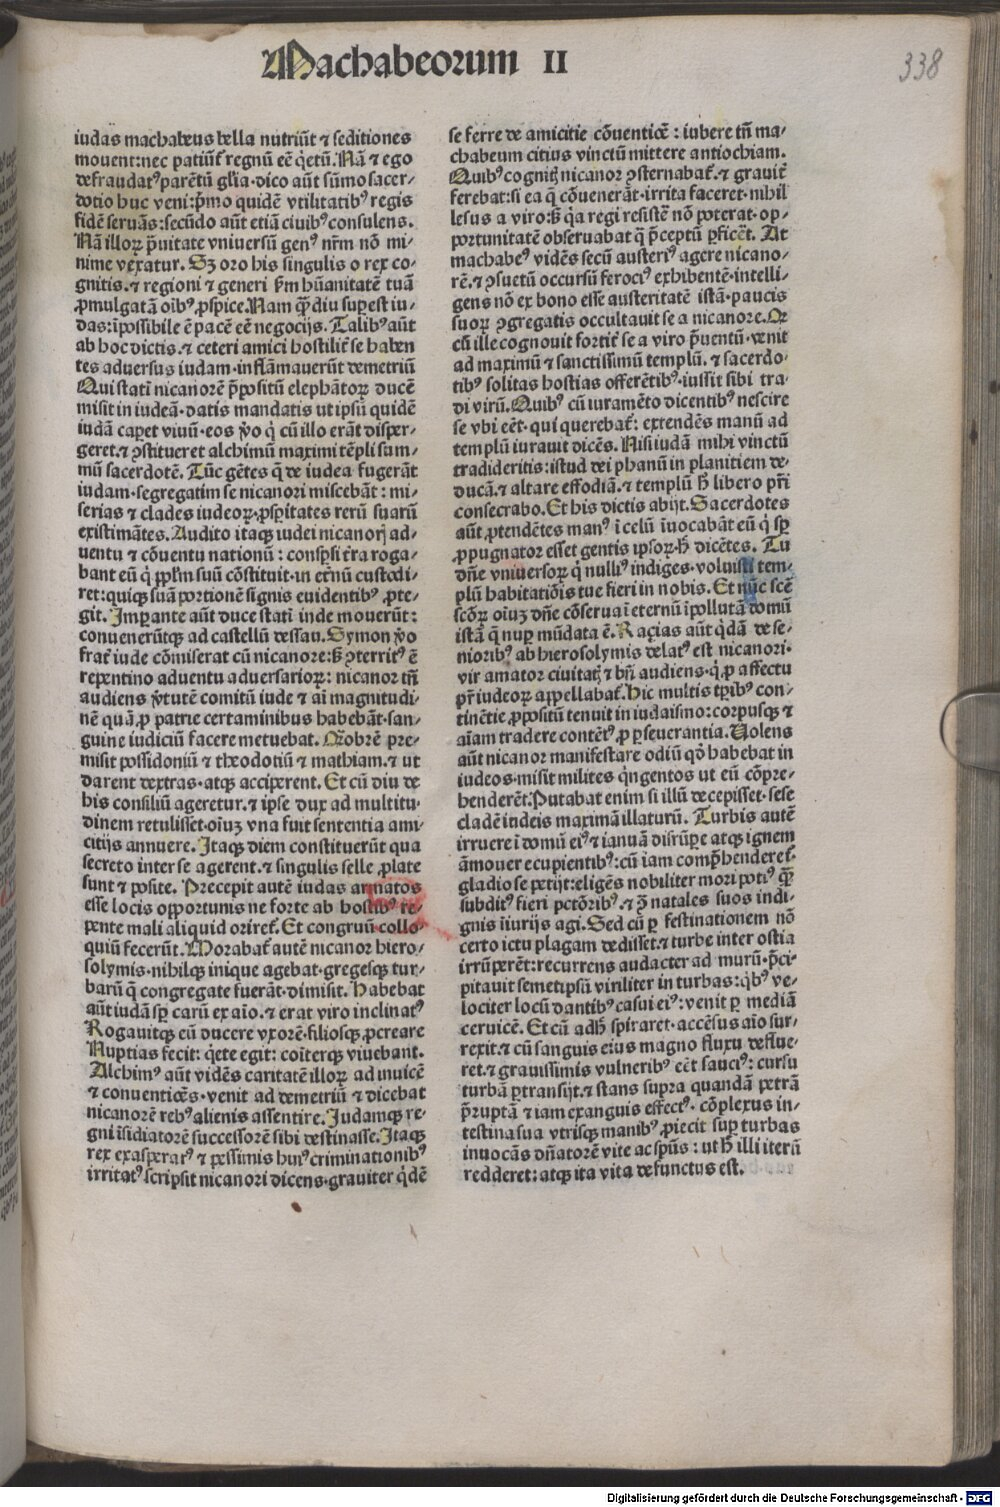 Machabeorum II
338
iudas machabeus bella nutriūt ⁊ seditiones
mouent: nec patiūt᷑ regnū eē q̇etū. Nā ⁊ ego
defraudatꝰ parētū gl̄ia · dico aūt sūmo sacer-
dotio huc veni: p̄mo quidē vtilitatibꝰ regis
fidē seruās: secūdo aūt etiā ciuibꝰ consulens.
Nā illoꝝ p̄uitate vniuersū genꝰ nr̄m nō mi-
nime vexatur. Sꝫ oro his singulis o rex co-
gnitis. ⁊ regioni ⁊ generi ẜm hūanitatē tuā
ꝓmulgatā oībꝰ ꝓspice. Nam q̄ꝫdiu suꝑest iu-
das: īpossibile ē pacē eē negocijs. Talibꝰ aūt
ab hoc dictis. ⁊ ceteri amici hostilit᷑ se haben
tes aduersus iudam · inflāmauerūt demetriū
Qui statī nicanorē p̄positū elephātoꝝ ducē
misit in iudeā · datis mandatis ut ipsū quidē
iudā caꝑet viuū · eos v̄o q̇ cū illo erāt disper-
geret. ⁊ ꝯstitueret alchimū maximi tēpli sum-
mū sacerdotē. Tūc gētes q̄ de iudea fugerāt
iudam · segregatim se nicanori miscebāt: mi-
serias ⁊ clades iudeoꝝ · ꝓsꝑitates rerū suarū
existimātes. Audito itaqꝫ iudei nicanorꝭ ad-
uentu ⁊ cōuentu nationū: consꝑsi t̄ra roga-
bant eū q̇ ppl̄m suū cōstituit · in et̄nū custodi-
ret: quiqꝫ suā portionē signis euidentibꝰ ꝓte-
git. Imꝑante aūt duce statī inde mouerūt:
conuenerūtqꝫ ad castellū dessau. Symon v̄o
frat᷑ iude cōmiserat cū nicanore: ẜꝫ ꝯterritꝰ ē
repentino aduentu aduersarioꝝ: nicanor tn̄
audiens v̄tutē comitū iude ⁊ aī magnitudi-
nē quā ꝓ patrie certaminibus habebāt · san-
guine iudiciū facere metuebat. Q̄obrē pre-
misit possidoniū ⁊ theodotiū ⁊ mathiam. ⁊ ut
darent dextras · atqꝫ acciꝑent. Et cū diu de
his consiliū ageretur. ⁊ ipse dux ad multitu-
dinem retulisset · oīuꝫ vna fuit sententia ami-
citijs annuere. Itaqꝫ diem constituerūt qua
secreto inter se agerent. ⁊ singulis selle ꝓlate
sunt ⁊ posite. Precepit autē iudas armatos
esse locis oꝑortunis ne forte ab hostibꝰ re-
pente mali aliquid oriret᷑. Et congruū collo-
quiū fecerūt. Morabat᷑ autē nicanor hiero-
solymis · nihilqꝫ inique agebat · gregesqꝫ tur-
barū q̄ congregate fuerāt · dimisit. Habebat
aūt iudā sꝑ carū ex aīo. ⁊ erat viro inclinatꝰ
Rogauitqꝫ eū ducere vxorē · filiosqꝫ ꝓcreare
Nuptias fecit: q̇ete egit: coīterqꝫ viuebant.
Alchimꝰ aūt vidēs caritatē illoꝝ ad inuicē
⁊ conuentioēs · venit ad demetriū ⁊ dicebat
nicanorē rebꝰ alienis assentire. Iudamqꝫ re-
gni īsidiatorē successorē sibi destinasse. Itaqꝫ
rex exasperatꝰ ⁊ pessimis huiꝰ criminationibꝰ
irritatꝰ scripsit nicanori dicens · grauiter q̇dē
se ferre de amicitie cōuenticē: iubere tn̄ ma-
chabeum citius vinctū mittere antiochiam.
Quibꝰ cognitꝭ nicanor ꝯsternabat᷑. ⁊ grauit᷑
ferebat: si ea q̄ cōuenerāt · irrita faceret · nihil
lesus a viro: ẜꝫ q̇a regi resistē nō poterat · op-
portunitatē obseruabat q̄ p̄ceptū ꝑficēt. At
machabeꝰ vidēs secū austeriꝰ agere nicano-
rē. ⁊ ꝯsuetū occursū ferociꝰ exhibentē · intelli-
gens nō ex bono esse austeritatē istā · paucis
suoꝝ ꝯgregatis occultauit se a nicanore. Qḋ
cū ille cognouit fortit᷑ se a viro p̄uentū · venit
ad maximū ⁊ sanctissimū templū. ⁊ sacerdo-
tibꝰ solitas hostias offerētibꝰ · iussit sibi tra-
di virū. Quibꝰ cū iuramēto dicentibꝰ nescire
se vbi eēt · qui querebat᷑: extendēs manū ad
templū iurauit dicēs. Nisi iudā mihi vinctū
tradideritis: istud dei phanū in planitiem de-
ducā. ⁊ altare effodiā. ⁊ templū h̄ libero pr̄i
consecrabo. Et his dictis abijt. Sacerdotes
aūt ꝓtendētes manꝰ ī celū īuocabāt eū q̇ sꝑ
ꝓpugnator esset gentis ipsoꝝ · h̄ dicētes. Tu
dn̄e vniuersoꝝ q̇ nulliꝰ indiges · voluisti tem-
plū habitatiōis tue fieri in nobis. Et nūc scē
scōꝝ oīuꝫ dn̄e cōserua ī eternū īpollutā domū
istā q̄ nuꝑ mūdata ē. Racias aūt q̇dā de se-
nioribꝰ ab hierosolymis delatꝰ est nicanori ·
vir amator ciuitatꝭ ⁊ bn̄ audiens · q̇ ꝓ affectu
pr̄ iudeoꝝ appellabat᷑. Hic multis tꝑibꝰ con-
tinētie ꝓpositū tenuit in iudaismo: corpusqꝫ ⁊
aīam tradere contētꝰ ꝓ ꝑseuerantia. Volens
aūt nicanor manifestare odiū qḋ habebat in
iudeos · misit milites q̇ngentos ut eū cōpre-
henderēt. Putabat enim si illū decepisset · sese
cladē iudeis maximā illaturū. Turbis autē
irruere ī domū eiꝰ ⁊ ianuā disrūꝑe atqꝫ ignem
āmouere cupientibꝰ: cū iam comp̄henderet᷑ ·
gladio se petijt: eligēs nobiliter mori potiꝰ q̄ꝫ
subditꝰ fieri pctōribꝰ. ⁊ ꝯ̄ natales suos indi-
gnis īiurijs agi. Sed cū ꝑ festinationem nō
certo ictu plagam dedisset. ⁊ turbe inter ostia
irrūꝑent: recurrens audacter ad murū · p̄ci-
pitauit semetipsū viriliter in turbas: q̇bꝰ ve-
lociter locū dantibꝰ casui eiꝰ: venit ꝑ mediā
ceruicē. Et cū adhꝰ spiraret · accēsus aīo sur-
rexit. ⁊ cū sanguis eius magno fluxu deflue-
ret. ⁊ grauissimis vulneribꝰ eēt sauciꝰ: cursu
turbā ꝑtransijt. ⁊ stans supra quandā petrā
p̄ruptā ⁊ iam exanguis effectꝰ · cōplexus in-
testina sua vtrisqꝫ manibꝰ ꝓiecit suꝑ turbas
inuocās dn̄atorē vite ac sp̄us: ut h̄ illi iterū
redderet: atqꝫ ita vita defunctus est.
Digitalisierung gefördert durch die Deutsche Forschungsgemeinschaft - DFG